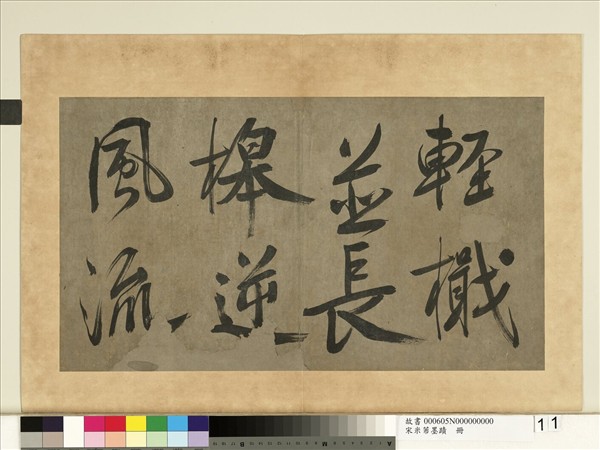 輕檝
並長
槔逆
風流
故書 000605N000000000
宋米芾墨蹟 冊
11